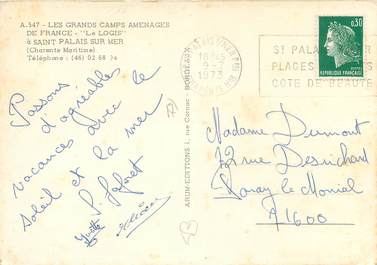 A.547 - LES GRANDS CAMPS AMENAGES
DE FRANCE - "Le LOGIS"
à SAINT PALAIS SUR MER
(Charente Maritime)
Téléphone : (46) 02 68
Passons
d'agréable
vacances avec le
soleil et la mer
Yvette
ARUM-EDITIONS 1, rue Cornac BORDEAUX
9-7
1973
ST PALAIS
MER
PLAGES
COTE DE BEAUTE
0,30
REPUBLIQUE FRANÇAISE
Madame Dumont
72 rue Desrichard
Paray le Monial
71600